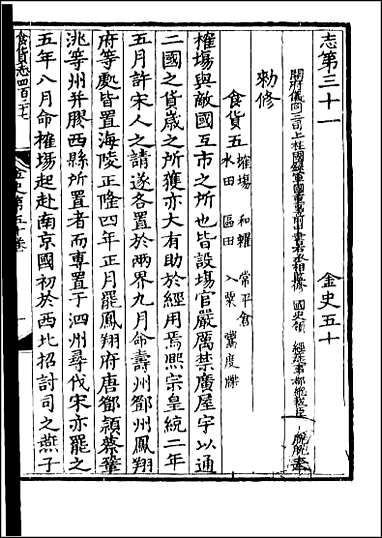 志第三十一
金史五十
開府儀同三司上柱國錄軍國重事前中書右丞相監修 國史領 經筵事都總裁臣脫脫奉
勑修
食貨五
榷場 和糴 常平倉
水田 區田 入粟 鬻度牒
榷場與敵國互市之所也皆設場官嚴厲禁廣屋宇以通
二國之貨歲之所獲亦大有助於經用焉熙宗皇統二年
五月許宋人之請遂各置於兩界九月命壽州鄧州鳳翔
府等處皆置海陵正隆四年正月罷鳳翔府唐鄧潁蔡鞏
洮等州并膠西縣所置者而專置于泗州尋伐宋亦罷之
五年八月命榷場起赴南京國初於西北招討司之燕子
食貨志四百三十七
金史第五十卷
一